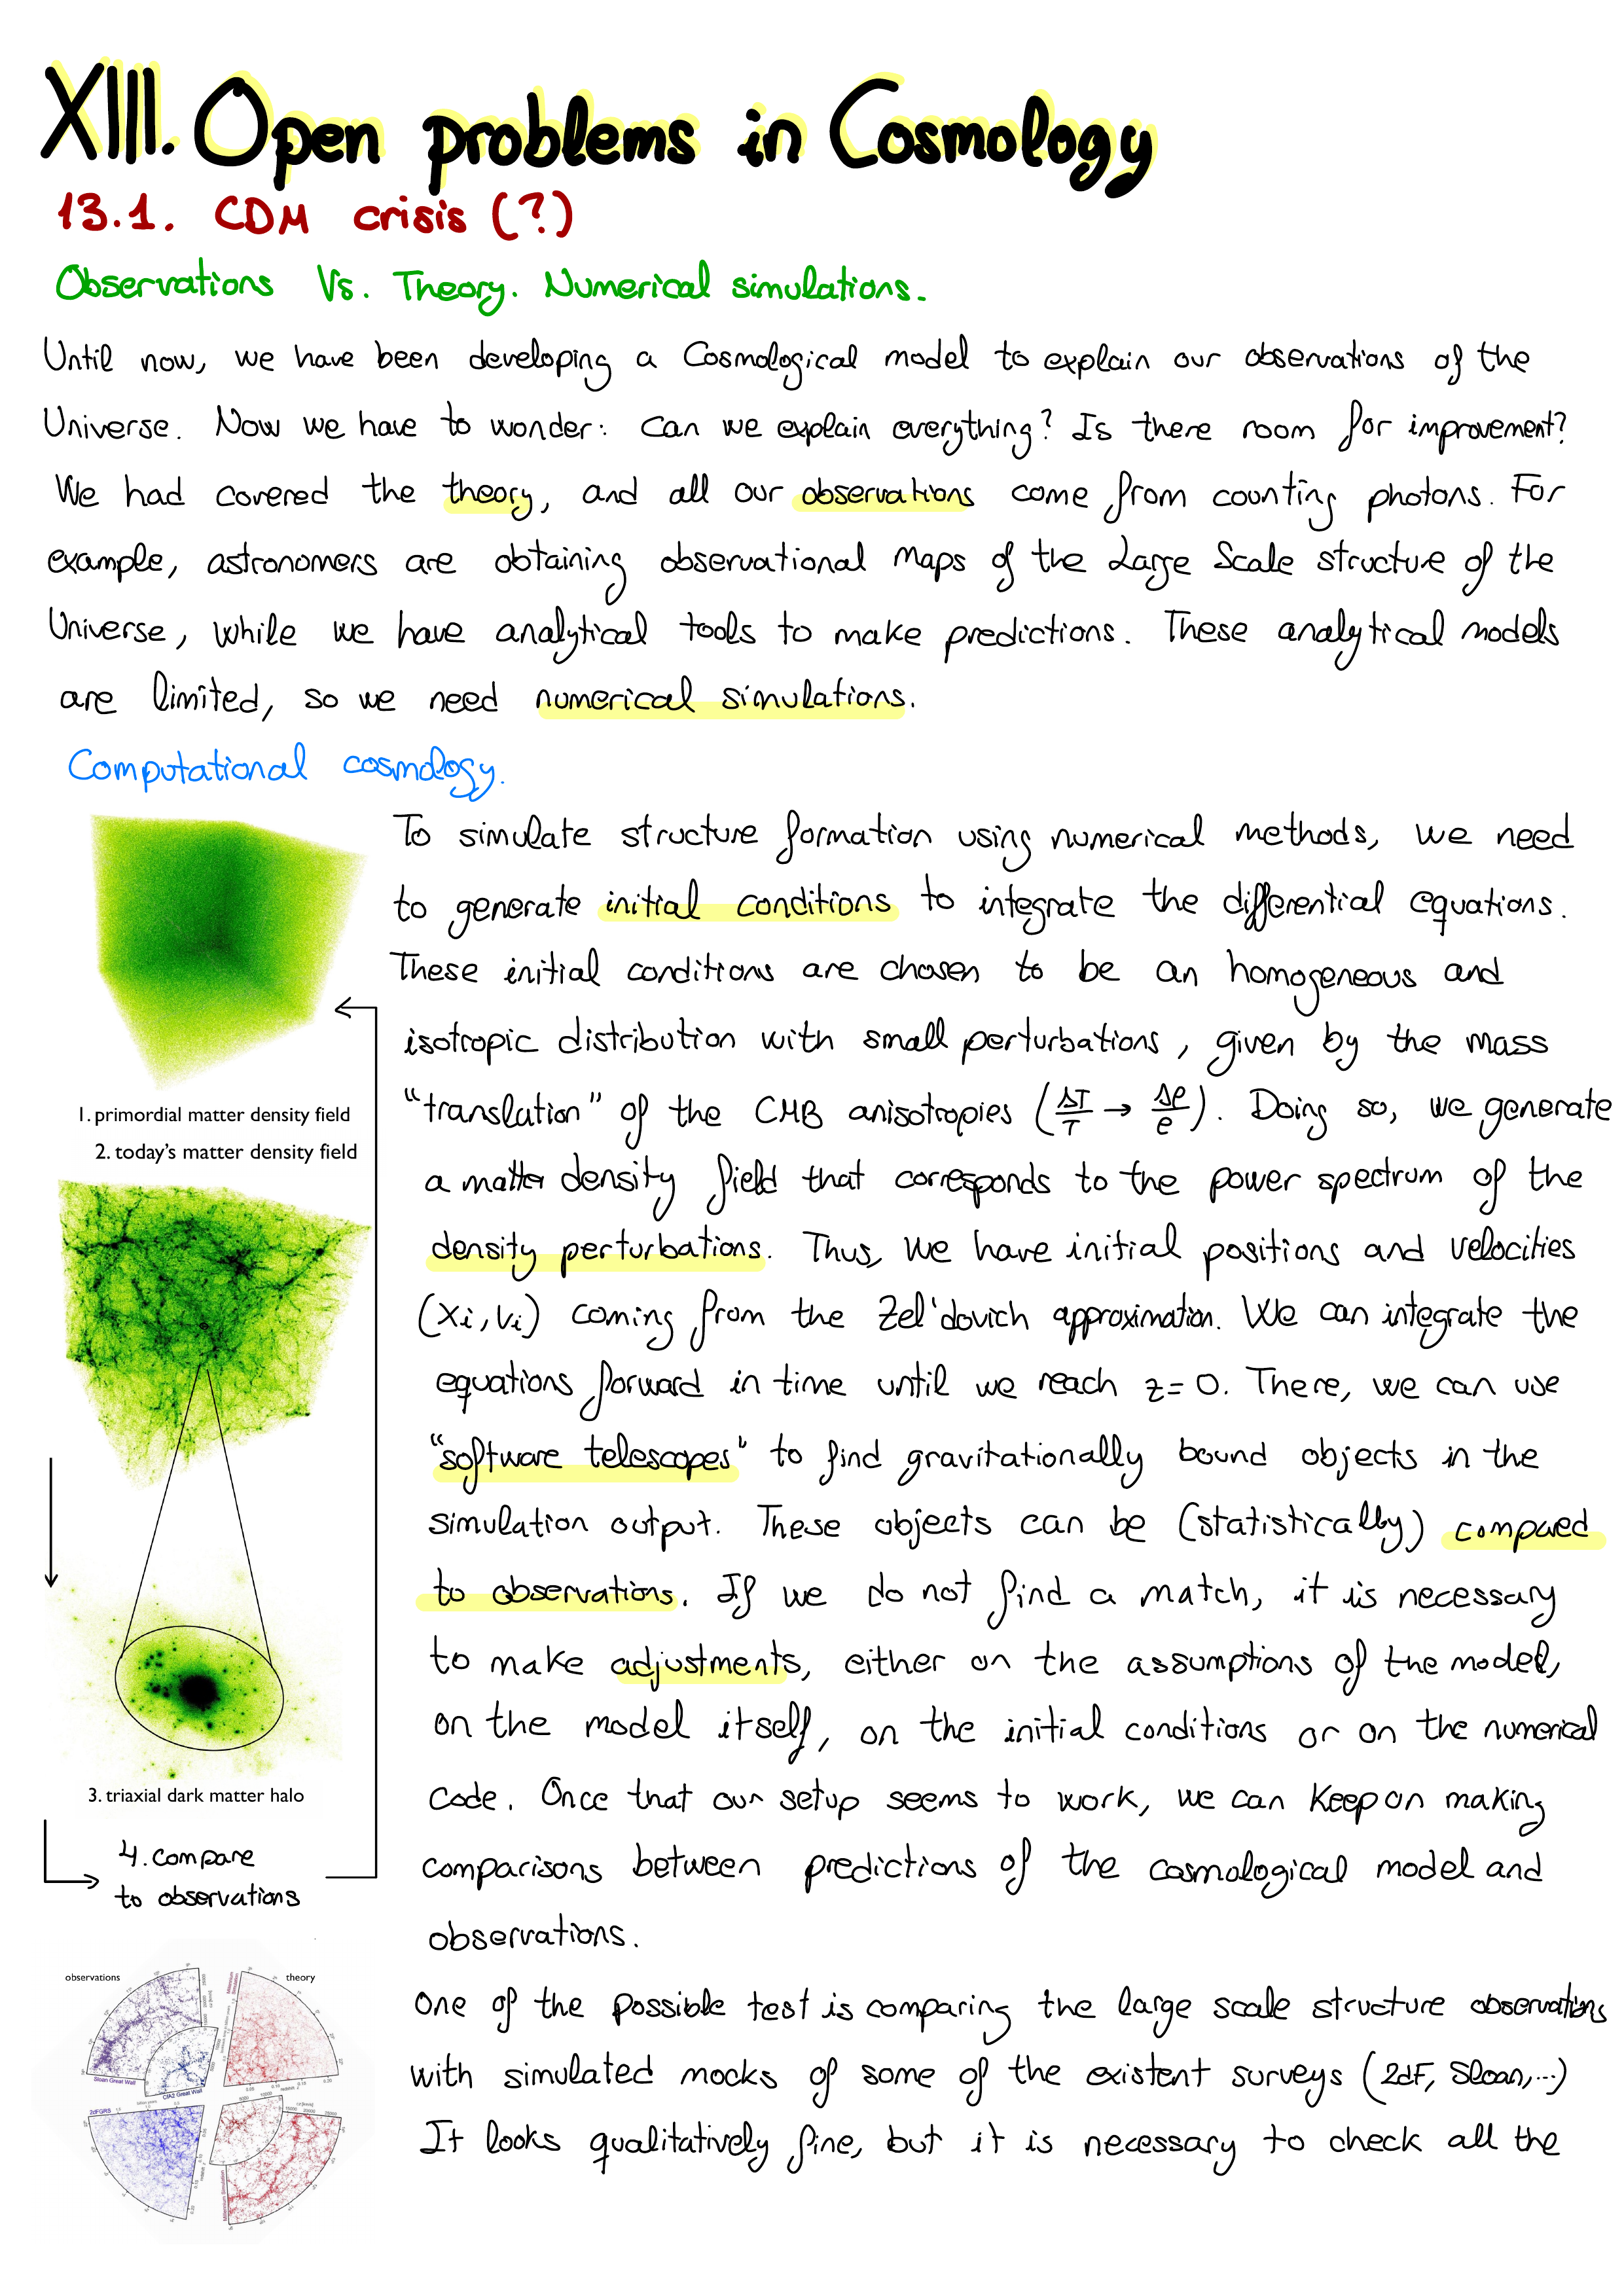 XIII. Open problems in Cosmology
13.1. CDM crisis (?)
Observations Vs. Theory. Numerical simulations.
Until now, we have been developing a Cosmological model to explain our observations of the
Universe. Now we have to wonder: can we explain everything? Is there room for improvement?
We had covered the theory, and all our observations come from counting photons. For
example, astronomers are obtaining observational maps of the Large Scale structure of the
Universe, while we have analytical tools to make predictions. These analytical models
are limited, so we need numerical simulations.
Computational cosmology.
To simulate structure formation using numerical methods, we need
to generate initial conditions to integrate the differential equations.
These initial conditions are chosen to be an homogeneous and
isotropic distribution with small perturbations, given by the mass
"translation" of the CMB anisotropies (ΔT/T → Δρ/ρ). Doing so, we generate
a matter density field that corresponds to the power spectrum of the
density perturbations. Thus, we have initial positions and velocities
(xi, vi) coming from the Zel'dovich approximation. We can integrate the
equations forward in time until we reach z=0. There, we can use
"software telescopes" to find gravitationally bound objects in the
simulation output. These objects can be (statistically) compared
to observations. If we do not find a match, it is necessary
to make adjustments, either on the assumptions of the model,
on the model itself, on the initial conditions or on the numerical
code. Once that our setup seems to work, we can keep on making
comparisons between predictions of the cosmological model and
observations.
One of the possible test is comparing the large scale structure observations
with simulated mocks of some of the existent surveys (2dF, Sloan,...)
It looks qualitatively fine, but it is necessary to check all the
1. primordial matter density field
2. today's matter density field
3. triaxial dark matter halo
4. compare
to observations
observations
theory
Sloan Great Wall
CfA2 Great Wall
2dFGRS